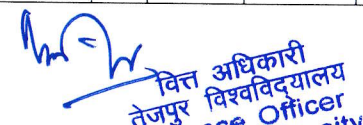 वित्त अधिकारी
तेजपुर विश्वविद्यालय
Officer